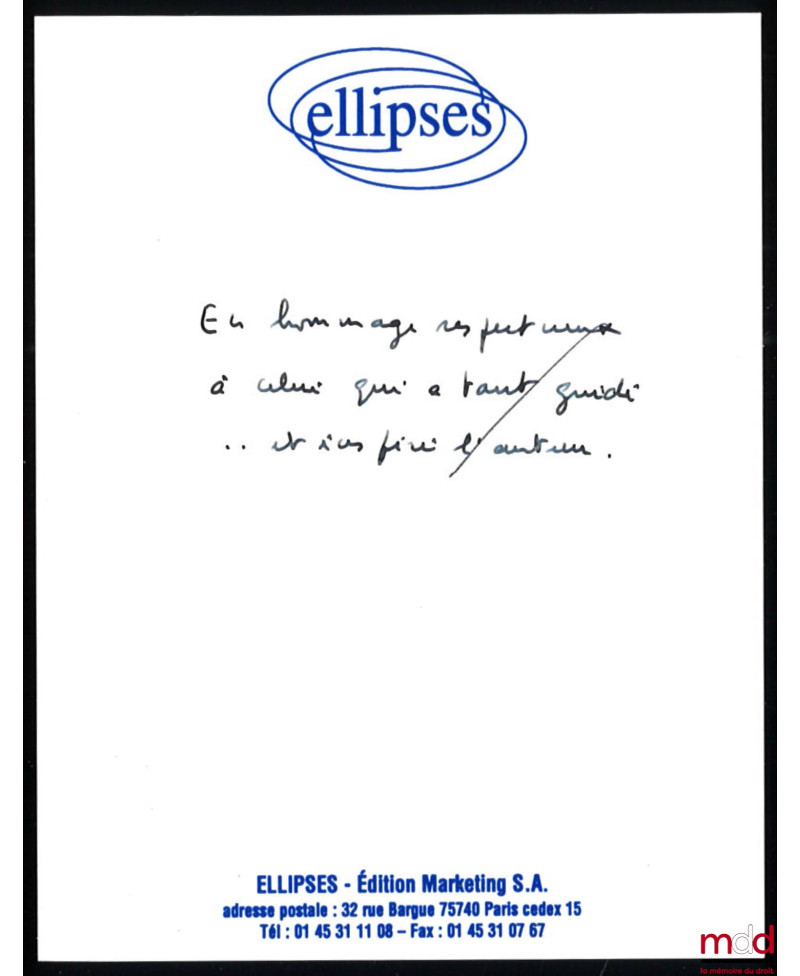 ellipses
En hommage respectueux
à celui qui a tant guidé
.. et inspiré l'auteur.
ELLIPSES - Édition Marketing S.A.
adresse postale : 32 rue Bargue 75740 Paris cedex 15
Tél : 01 45 31 11 08 – Fax : 01 45 31 07 67
mdd
la mémoire du droit